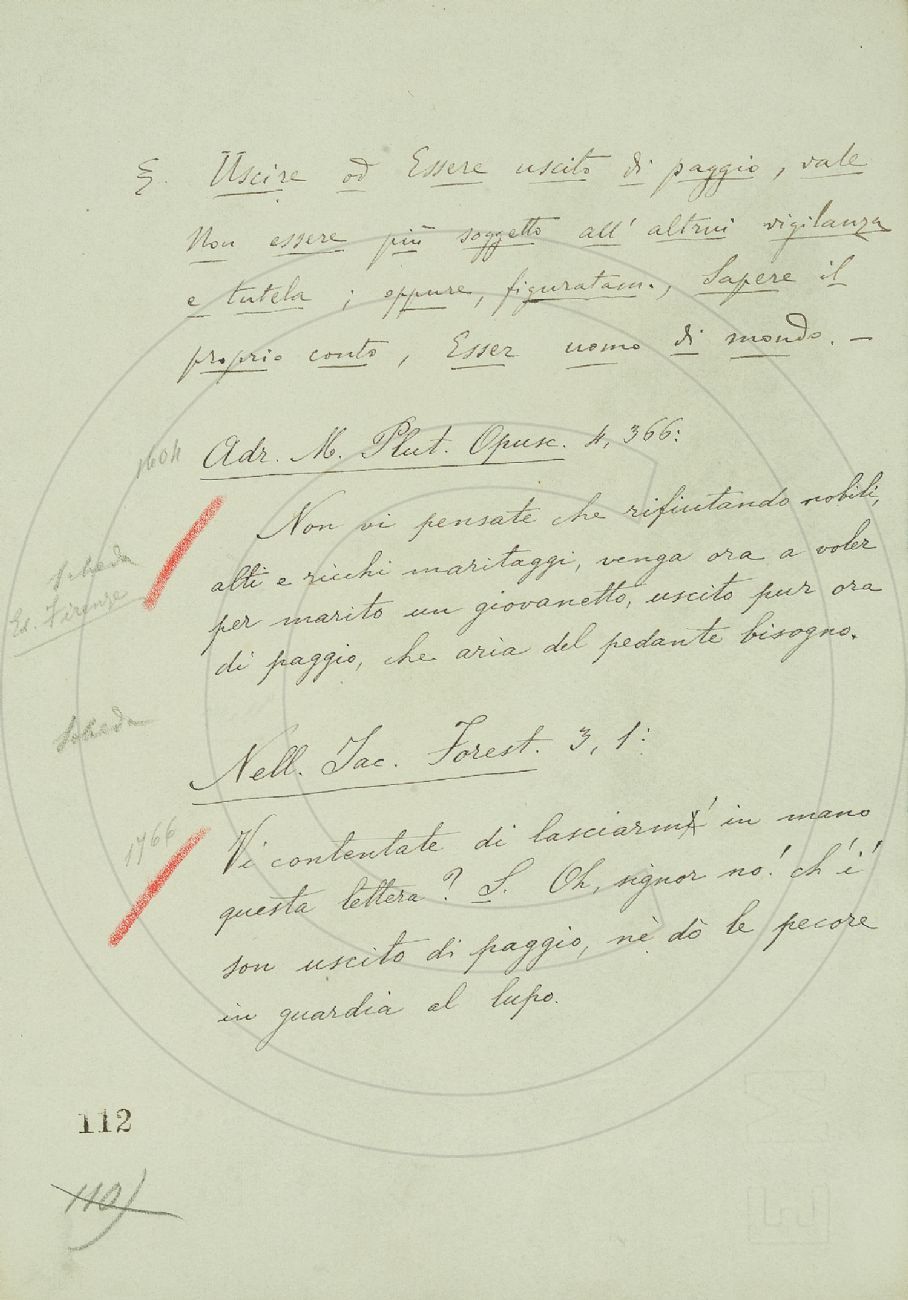 §. Uscire od Essere uscito di paggio, vale
Non essere più soggetto all' altrui vigilanza
e tutela; eppure, figuratam., Sapere il
proprio conto, Esser uomo di mondo. –
1604
Adr. M. Plut. Opusc. 4, 366:
Non vi pensate che rifiutando nobili,
Scheda
alti e ricchi maritaggi, venga ora a voler
Es. Firenze
per marito un giovanetto, uscito pur ora
di paggio, che aria del pedante bisogno.
Scheda
Nell. Jac. Forest. 3, 1:
1766
Vi contentate di lasciarm' in mano
questa lettera? S. Oh, signor no! ch' i'
son uscito di paggio, nè dò le pecore
in guardia al lupo.
112
110)